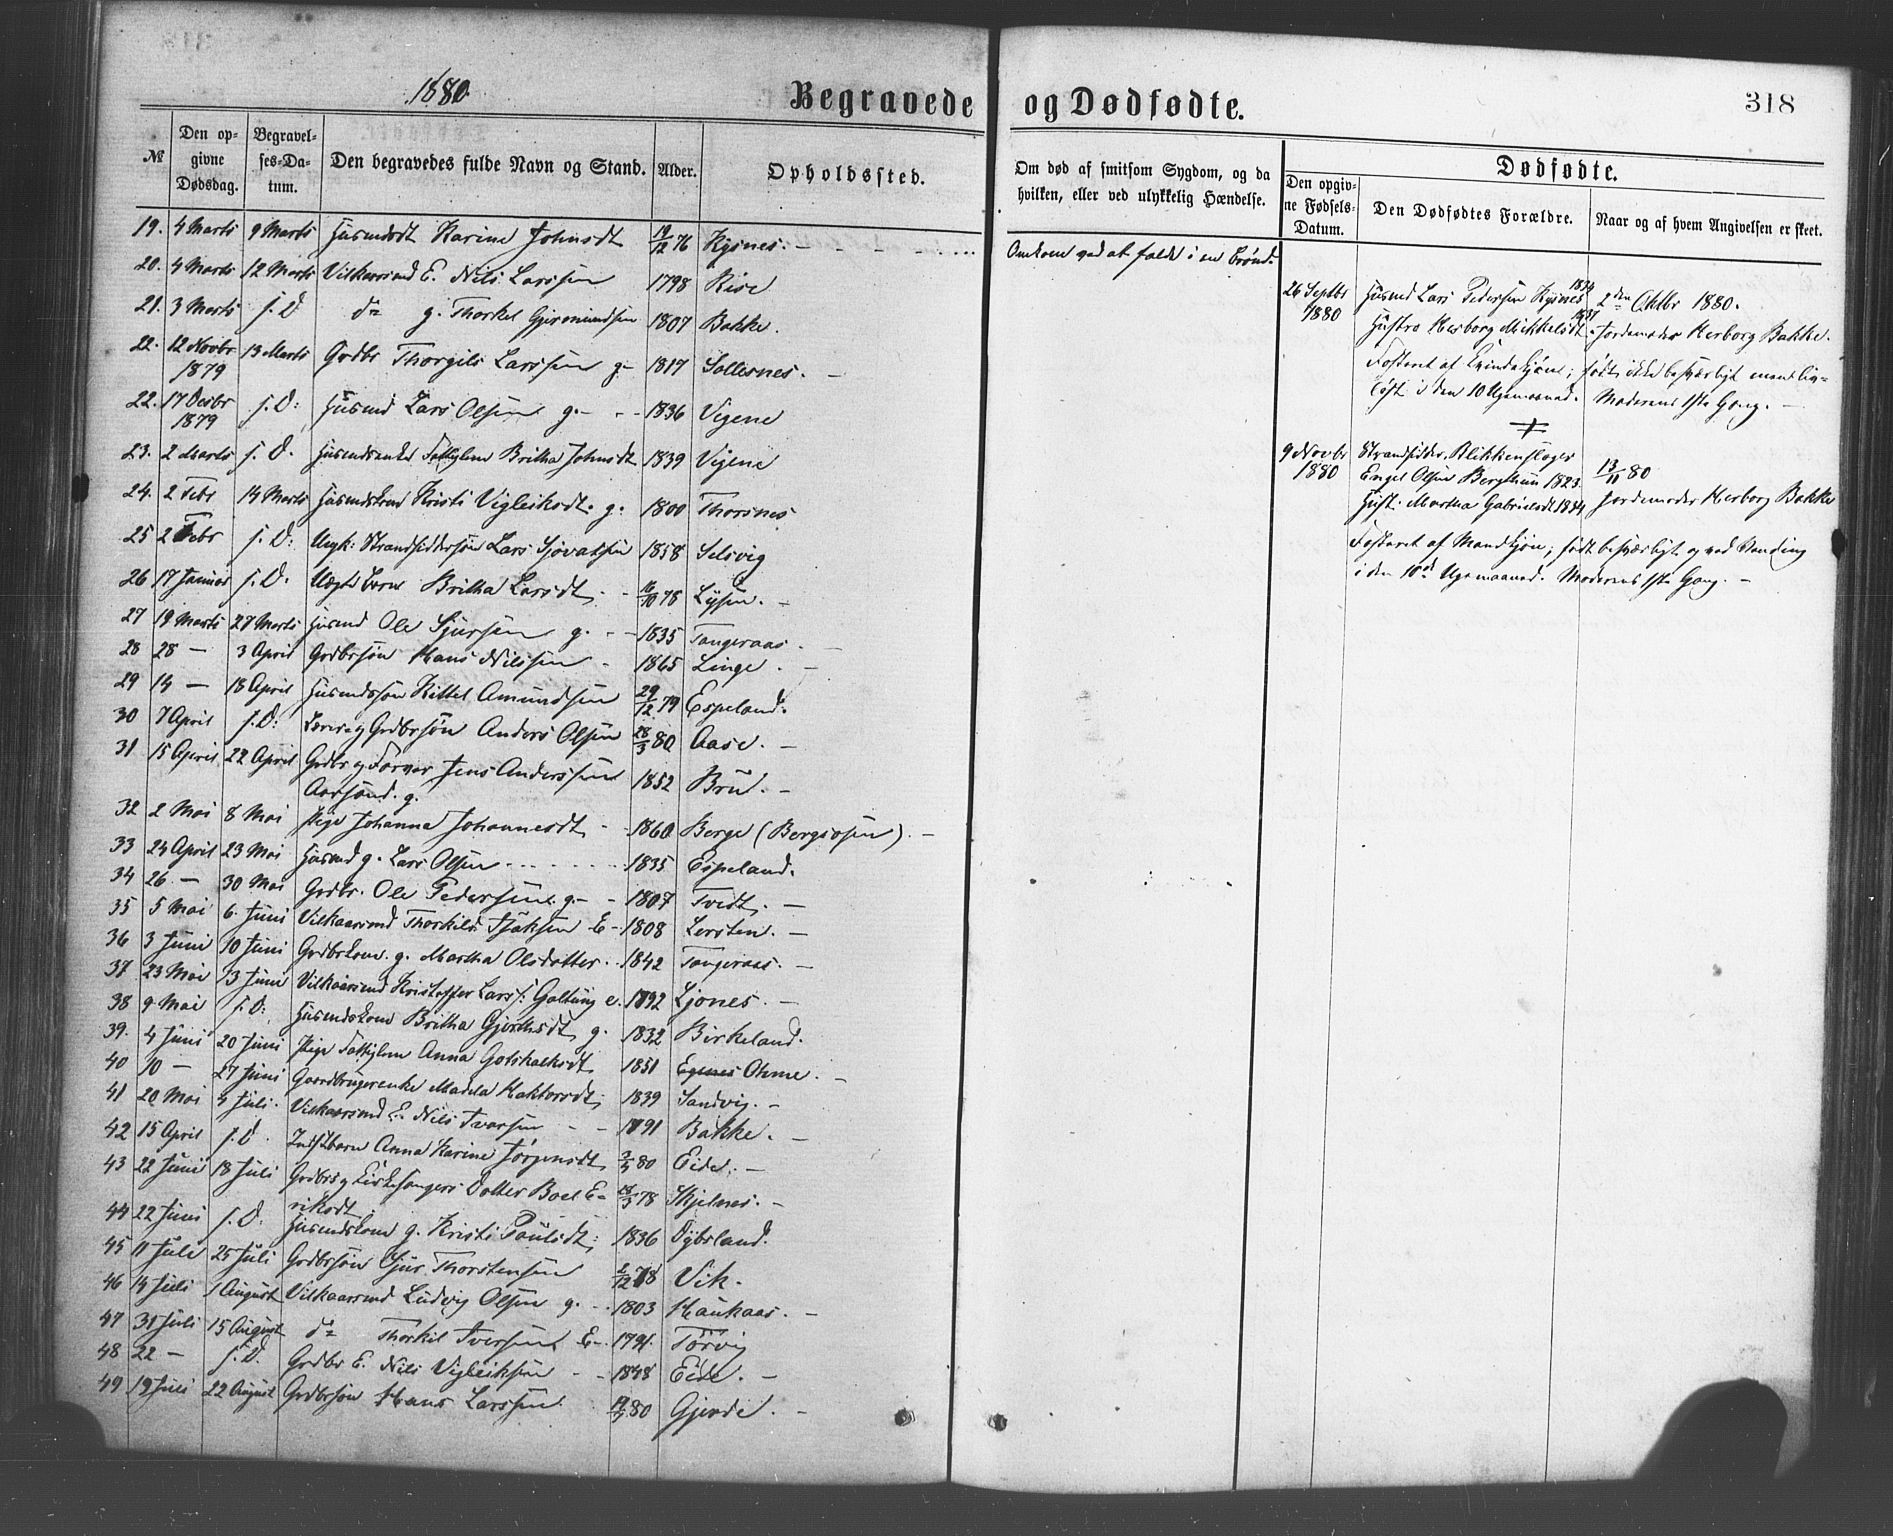 1880.
Begravede og Dødfødte.
318
№
Den opgivne Dødsdag.
Begravelses-Datum.
Den begravedes fulde Navn og Stand.
Alder.
Opholdssted.
Om død af smitsom Sygdom, og da hvilken, eller ved ulykkelig Hændelse.
Dødfødte.
Den opgivne Fødsels-Datum.
Den Dødfødtes Forældre.
Naar og af hvem Angivelsen er skeet.
19. 4 Marts 9 Marts Husmdsdt Karine Johnsdt 19/12 76 Kysnes. Omkom ved at falde i en Brønd.
20. 4 Marts 12 Marts Vilkaarsmd E. Nils Larssen 1798 Rise
21. 3 Marts s. D do g. Thorkel Geirmundsen 1807 Bakke.
22. 12 Novbr 1879 13 Marts Grdbr Thorgils Larssen g. 1817 Sollesnes.
22. 17 Decbr 1879 s. D: Husmd Lars Olsen g. 1836 Vigene
23. 2 Marts s. D. Husmdsenke Fattiglem Britha Johnsdt 1839 Vigene
24. 2 Febr 14 Marts Husmdskone Kristi Vigleiksdt. g. 1800 Thorsnes
25 2 Febr s. D: Ungk: Strandsiddersøn Lars Sjovatsen 1858 Selsvig
26 17 Januar s. D. Uægte Barn Britha Larsdt. 16/10 78 Lysen.
27 19 Marts 27 Marts Husmd Ole Sjursen g. 1835 Tangeraas.
28 28 — 3 April Grdbrsøn Hans Nilssen 1865 Linge.
29 14 — 18 April Husmdssøn Kittel Amundsen 29/12 79 Espeland.
30 7 April s. D: Lærer og Grdbrsøn Anders Olsen 28/3 80 Aase.
31 15 April 22 April Grdbr og Farver Jens Anderssen
Aarsand. g. 1852 Bru.
32 2 Mai 8 Mai Pige Johanna Johannesdt 1860 Berge (Bergsosen).
33 24 April 23 Mai Husmd g. Lars Olsen 1835 Espeland.
34 26 — 30 Mai Grdbr. Ole Pedersen. g. 1807 Tvedt.
35 5 Mai 6. Juni Vilkaarsmd Thorkild Isaksen E 1808 Lersten.
36 3 Juni 10 Juni Grdbrkone. g. Martha Olsdatter 1842 Tangeraas.
37 23 Mai 13 Juni Vilkaarsmd Kristoffer Larss: Galtung e. 1792 Ljones.
38 9 Mai s. D: Husmdskone Britha Gjerthsdt g. 1832 Birkeland.
39. 4 Juni 20 Juni Pige Fattiglem Anna Gotskalksdt 1851 Egenes Okme.
40 10 — 27 Juni Gaardbrugerenke Madela Haktorsdt 1839 Sandvig.
41 20 Mai 4 Juli. Vilkaarsmd E. Nils Ivarsen 1791 Bakke.
42 15 April s. D. Indstbarn Anna Karine Jørgensdt 80 Eide.
43 22 Juni 18 Juli Grdbr og Kirkesangers Datter Boel E-
riksdt 78 Skjelnes.
44 22 Juni s. D. Husmdskone g. Kristi Paulsdt: 1836 Dybsland.
45 11 Juli 25 Juli Grdbrsøn Sjur Thorstensen 78 Vik.
46 14 Juli 1 August Vilkaarsmd Ludvig Olsen g. 1803 Haukaas.
47 31 Juli 15 August do Thorkil Iversen E. 1791. Tørvig
48 22 — s. D. Grdbr E. Nils Vigleiksen 1848 Eide.
49 19 Juli 22 August Grdbrsøn Hans Larssen 80 Gjerde.
26 Septbr 1880
Husmd Lars Pedersen Kysnes 1834
Hustro Herborg Mikkelsdt 1837
2den Oktbr 1880.
Jordemoder Herborg Bakke.
Fosteret af Kvindekjøn; født ikke besværligt men liv-
løst i den 10 Ugemaaned. Moderens 1ste Gang.
9 Novbr 1880
Strandsidder, Blikkenslager
Engel Olsen Bergthun 1823
Hust. Martha Gabrielsdt 1834
13/11 80
Jordemoder Herborg Bakke
Fosteret af Mandkjøn; født besværligt og ved Vending
i den 10de Ugemaaned. Moderens 1ste Gang.